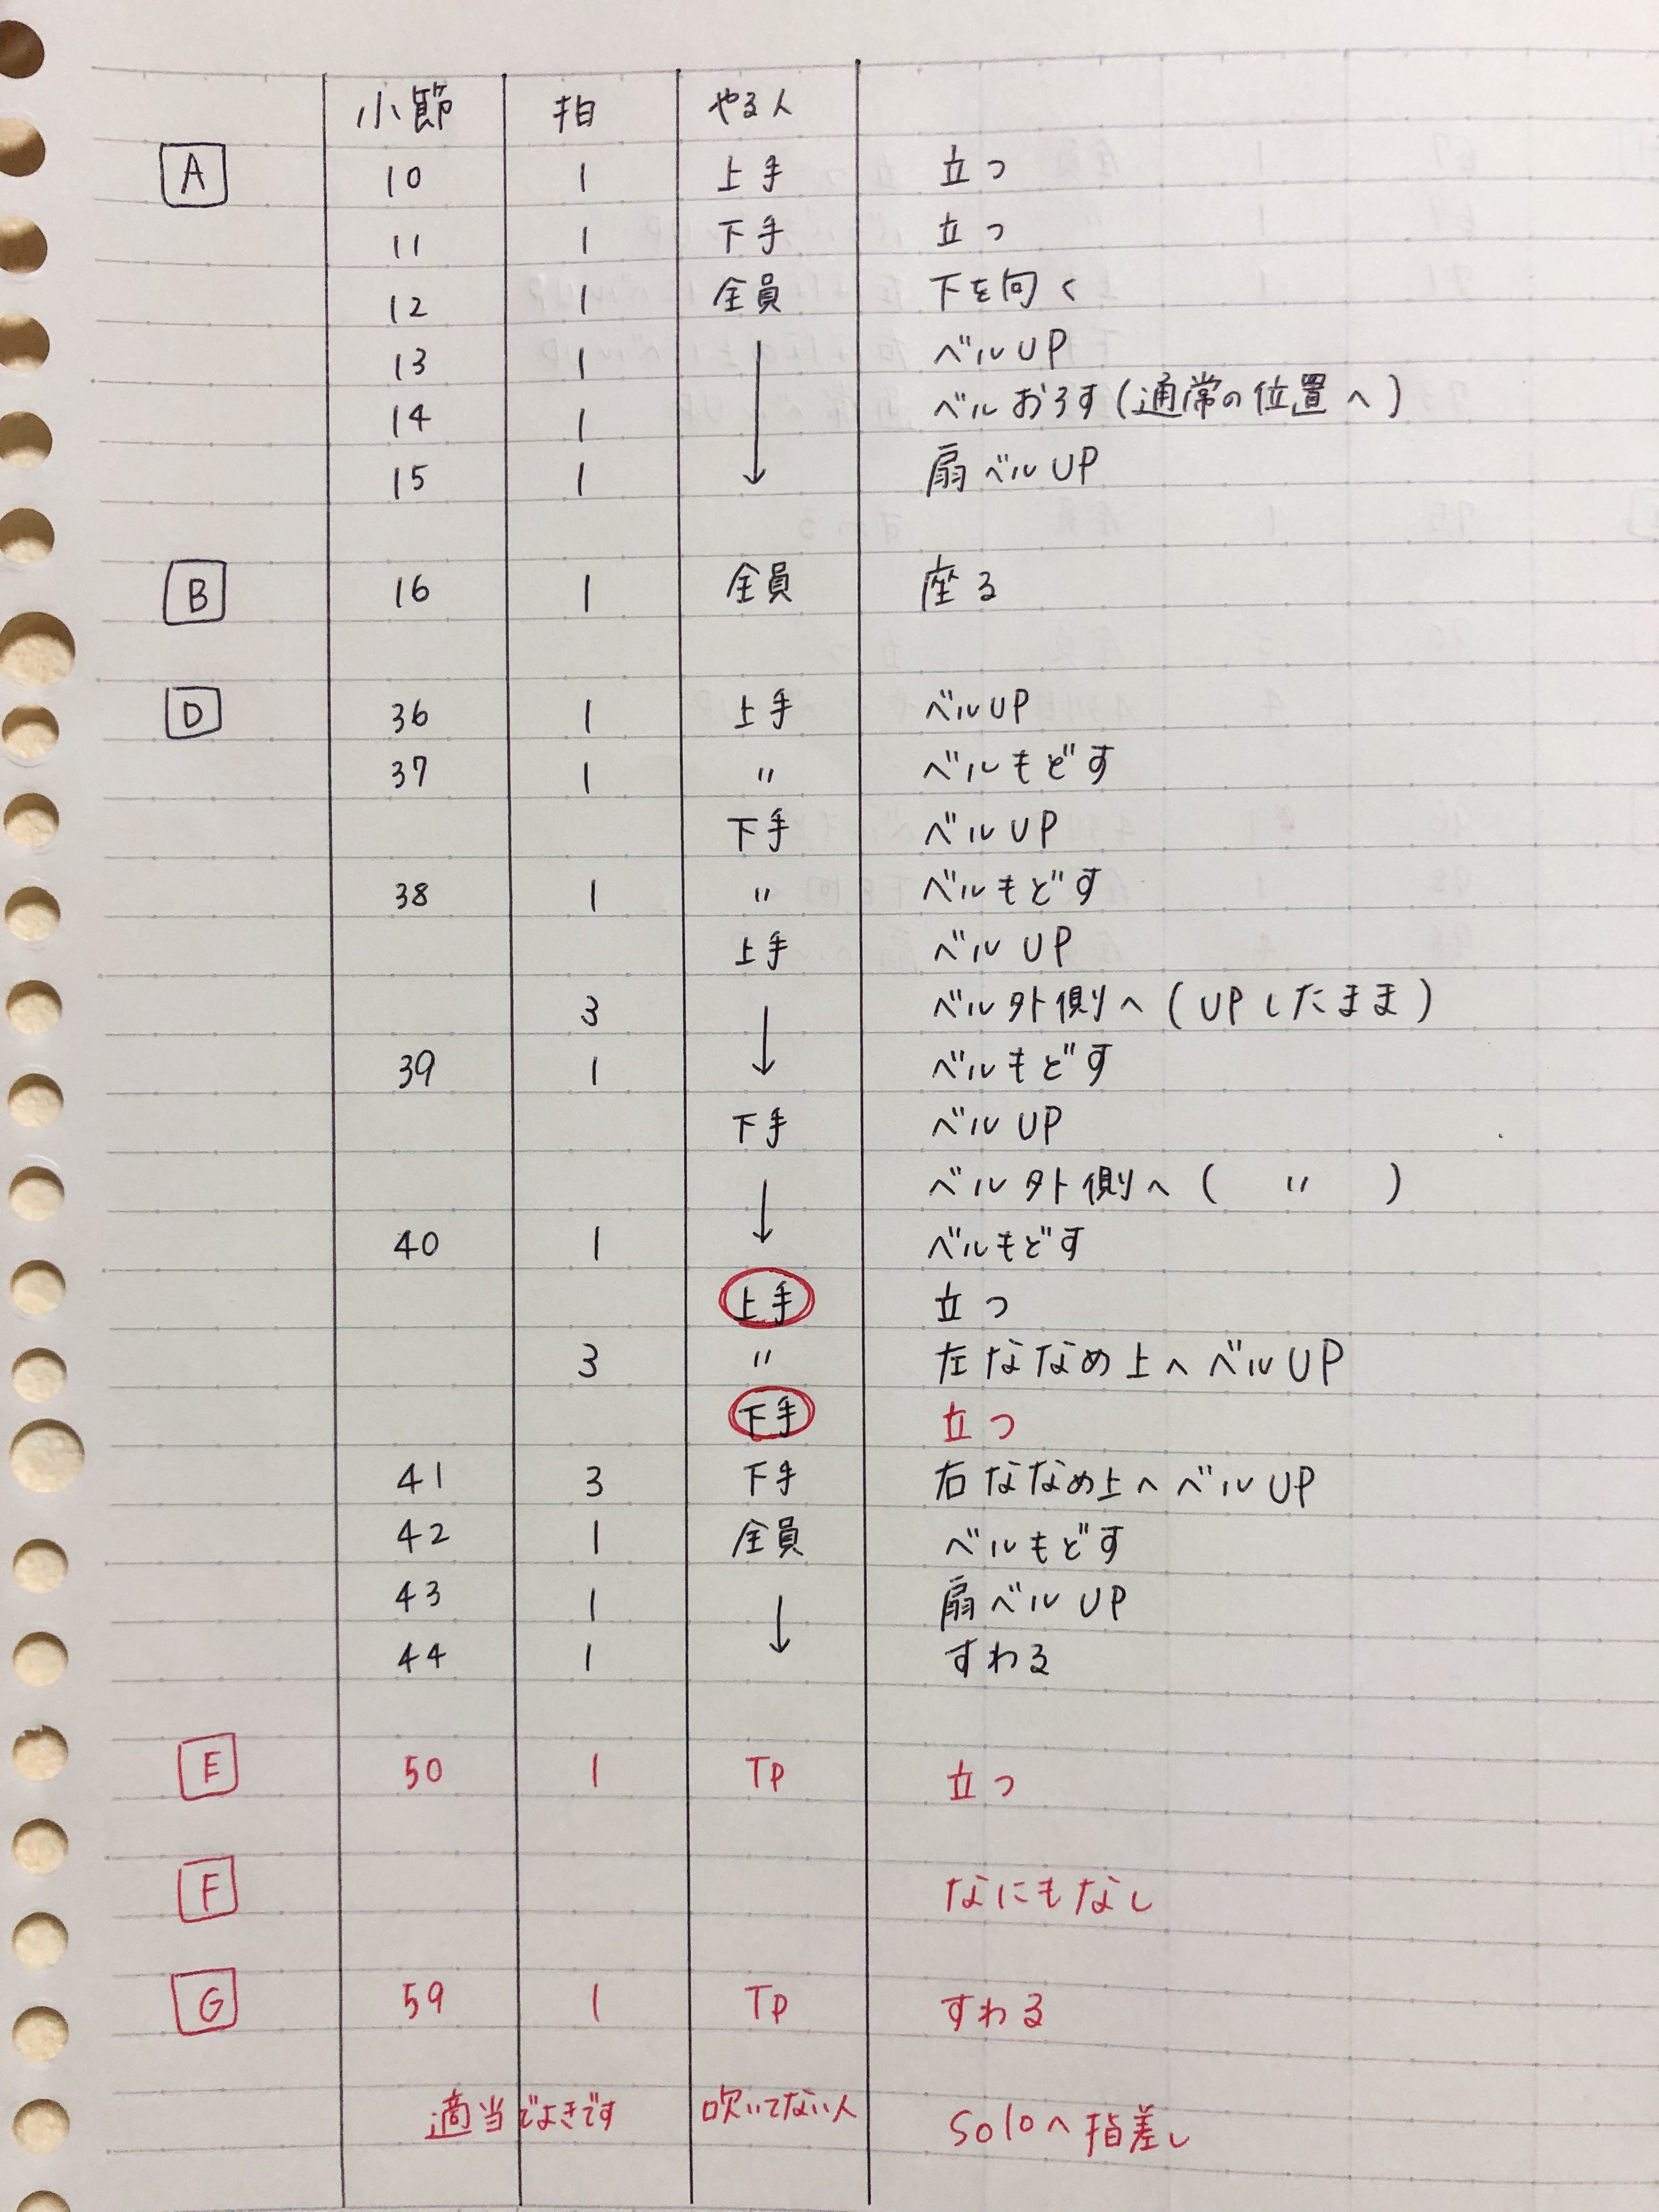 小節 拍 やる人
A 10 1 上手 立つ
11 1 下手 立つ
12 1 全員 下を向く
13 1 ベルUP
14 1 ベルおろす(通常の位置へ)
15 1 扇ベルUP
B 16 1 全員 座る
D 36 1 上手 ベルUP
37 1 〃 ベルもどす
下手 ベルUP
38 1 〃 ベルもどす
上手 ベルUP
3 ベル外側へ(UPしたまま)
39 1 ベルもどす
下手 ベルUP
ベル外側へ( 〃 )
40 1 ベルもどす
上手 立つ
3 〃 左ななめ上へベルUP
下手 立つ
41 3 下手 右ななめ上へベルUP
42 1 全員 ベルもどす
43 1 扇ベルUP
44 1 すわる
E 50 1 TP 立つ
F なにもなし
G 59 1 TP すわる
適当でよきです 吹いてない人 soloへ指差し